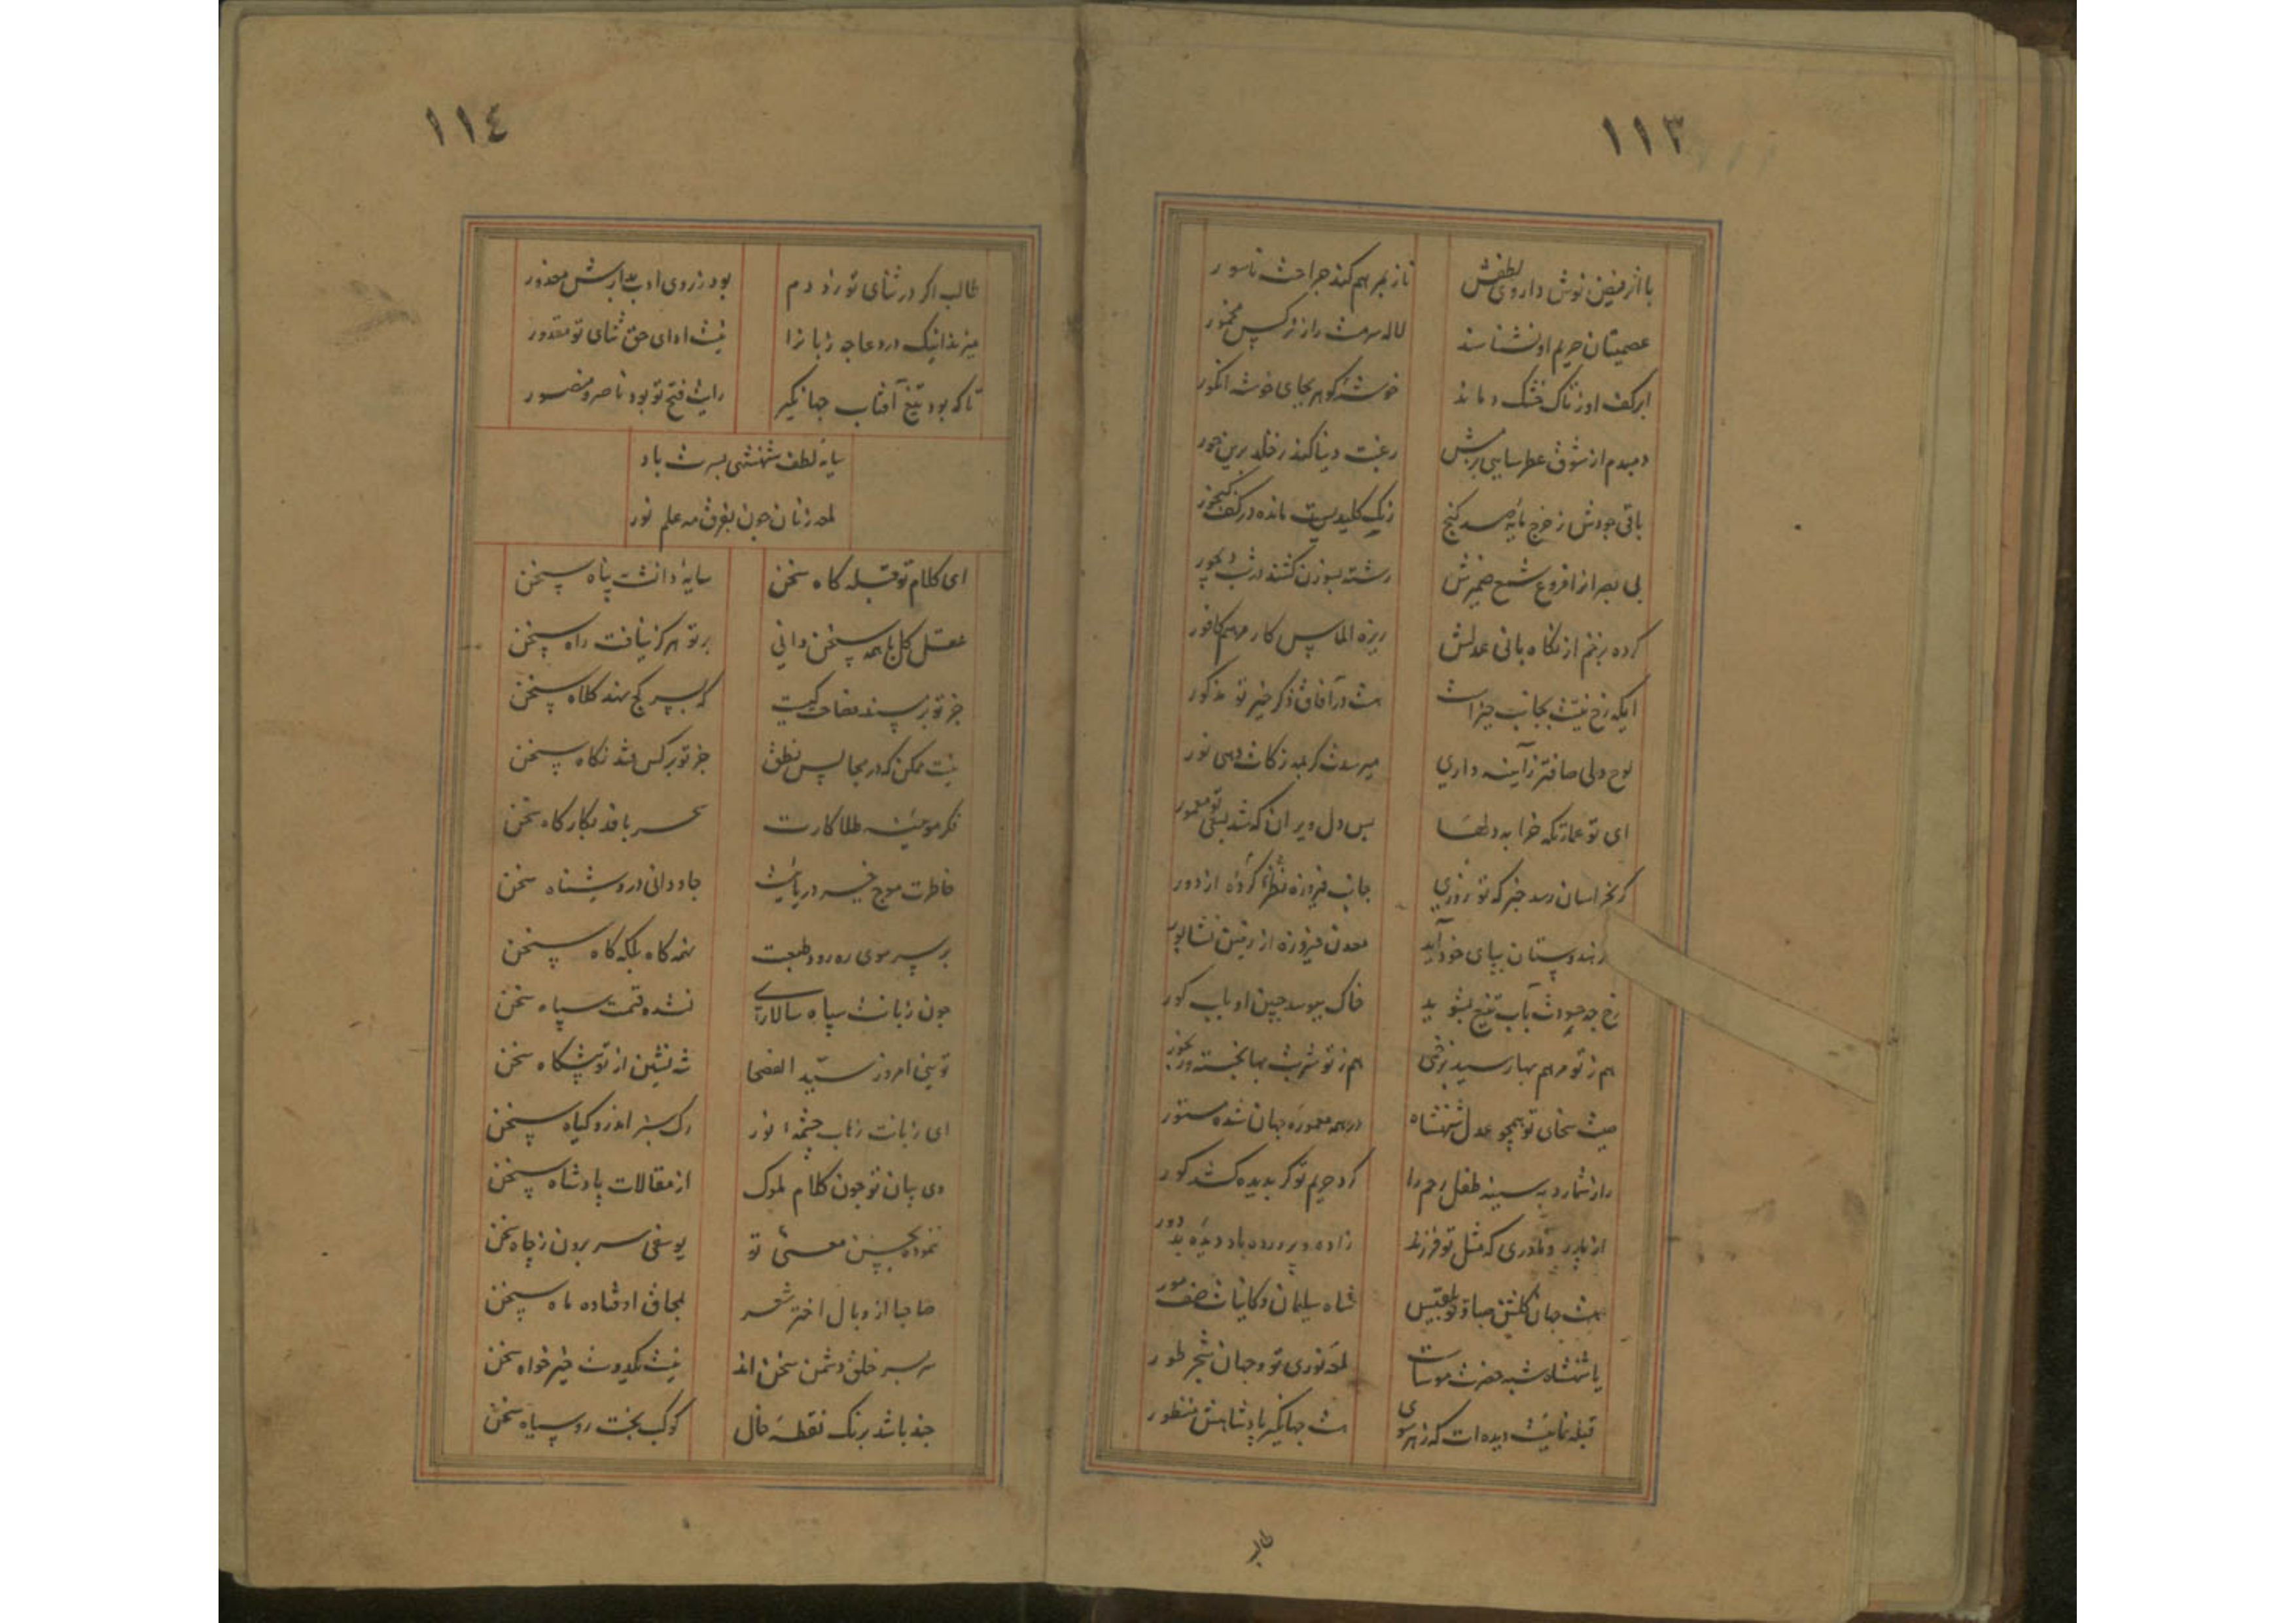 ١١٣
با اثر فیض نوش داروی لطفش
ناز بمرهم کند جراحت ناسور
عصمتیان حریم او نشناسند
لاله سرمست را ز نرکس مخمور
ابر کف او ز تاک خشک دماند
خوشهٔ کوهر بجای خوشه انکور
دمبدم از شوق عطرسایی بزمش
رغبت دنیا کند ز خلد برین حور
باقی جودش ز خرج مایهٔ صد کنج
زنک کلیدیست مانده در کف کنجور
بی بصر از افروغ شمع ضمیرش
رشته بسوزن کشند در شب دیجور
کرده بزخم از نکاهبانی عدلش
ریزه الماس کار مرهم کافور
ایکه رخ نیتت بجانب خیرات
هست در آفاق ذکر خیر تو مذکور
لوح دلی صافتر ز آینه داری
میرسدت کر بمه زکات دهی نور
ای تو عمارتکه خرابه دلها
بس دل ویران که شد بسعی تو معمور
کر بخراسان رسد خبر که تو روزی
جانب فیروزه نظر کردهٔ از دور
هندوستان بپای خود آید
معدن فیروزه از زمین نشابور
رخ چو حسودت بآب تیغ بشوید
خاک ببوسد جبین او بلب کور
هم ز تو مرهم بها رسید بزخمی
هم ز تو شربت بها بخسته رنجور
صیت سخای تو همچو عدل شهنشاه
در همه معمورهٔ جهان شده مستور
راز شمارد به سینه طفل رحم را
کرد حریم تو کر بدیده کشد کور
از پدر و مادری که مثل تو فرزند
زاده و پرورده باد دیده بد دور
هست جهان کلشن صبا و تو بلقیس
شاه سلیمان و کاینات صف مور
یا شهنشاه شبه حضرت موسات
لمعه نوری تو و جهان شجر طور
قبله نمائیست دیده ات که ز هر سوی
هست جهانکیر پادشاهش منظور
طالب
١١٤
طالب اکر در ثنای تو نزد دم
بود ز روی ادب بدارش معذور
میزند اینک در دعا چه زبان را
نیست ادای حق ثنای تو مقدور
تا که بود تیغ آفتاب جهانکیر
رایت فتح تو بود ناصر و منصور
سایه لطف شهنشهی بسرت باد
لمعه زنان چون بفرق مه علم نور
ای کلام تو قبله کاه سخن
سایهٔ دانشت پناه سخن
عقل کل با همه سخن دانی
بر تو هرکز نیافت راه سخن
جز تو بر مسند فصاحت کیست
که بسر کج نهد کلاه سخن
نیست ممکن که در مجالس نطق
جز تو بر کس فتد نکاه سخن
فکر موئینه طلا کارت
سحر بافد بکارکاه سخن
خاطرت موج خیز دریائیست
جاودانی در و شناه سخن
بر سر موی ره رود طبعت
نه که کاه بلکه کاه سخن
چون زبانت سپاه سالاری
نشده قسمت سپاه سخن
توئی امروز سید الفصحا
شه نشین از تو پیشکاه سخن
ای زبانت زهاب چشمهٔ نور
رک سبز اندرو کیاه سخن
وی بیان تو چون کلام ملوک
از مقالات پادشاه سخن
ننموده بحسن معنی تو
یوسفی سر برون ز چاه سخن
صاحبا از وبال اختر شعر
بمحاق اوفتاده ماه سخن
سر بسر خلق دشمن سخن اند
نیست یکدوست خیرخواه سخن
چند باشد برنک نقطه خال
کوکب بخت رو سیاه سخن